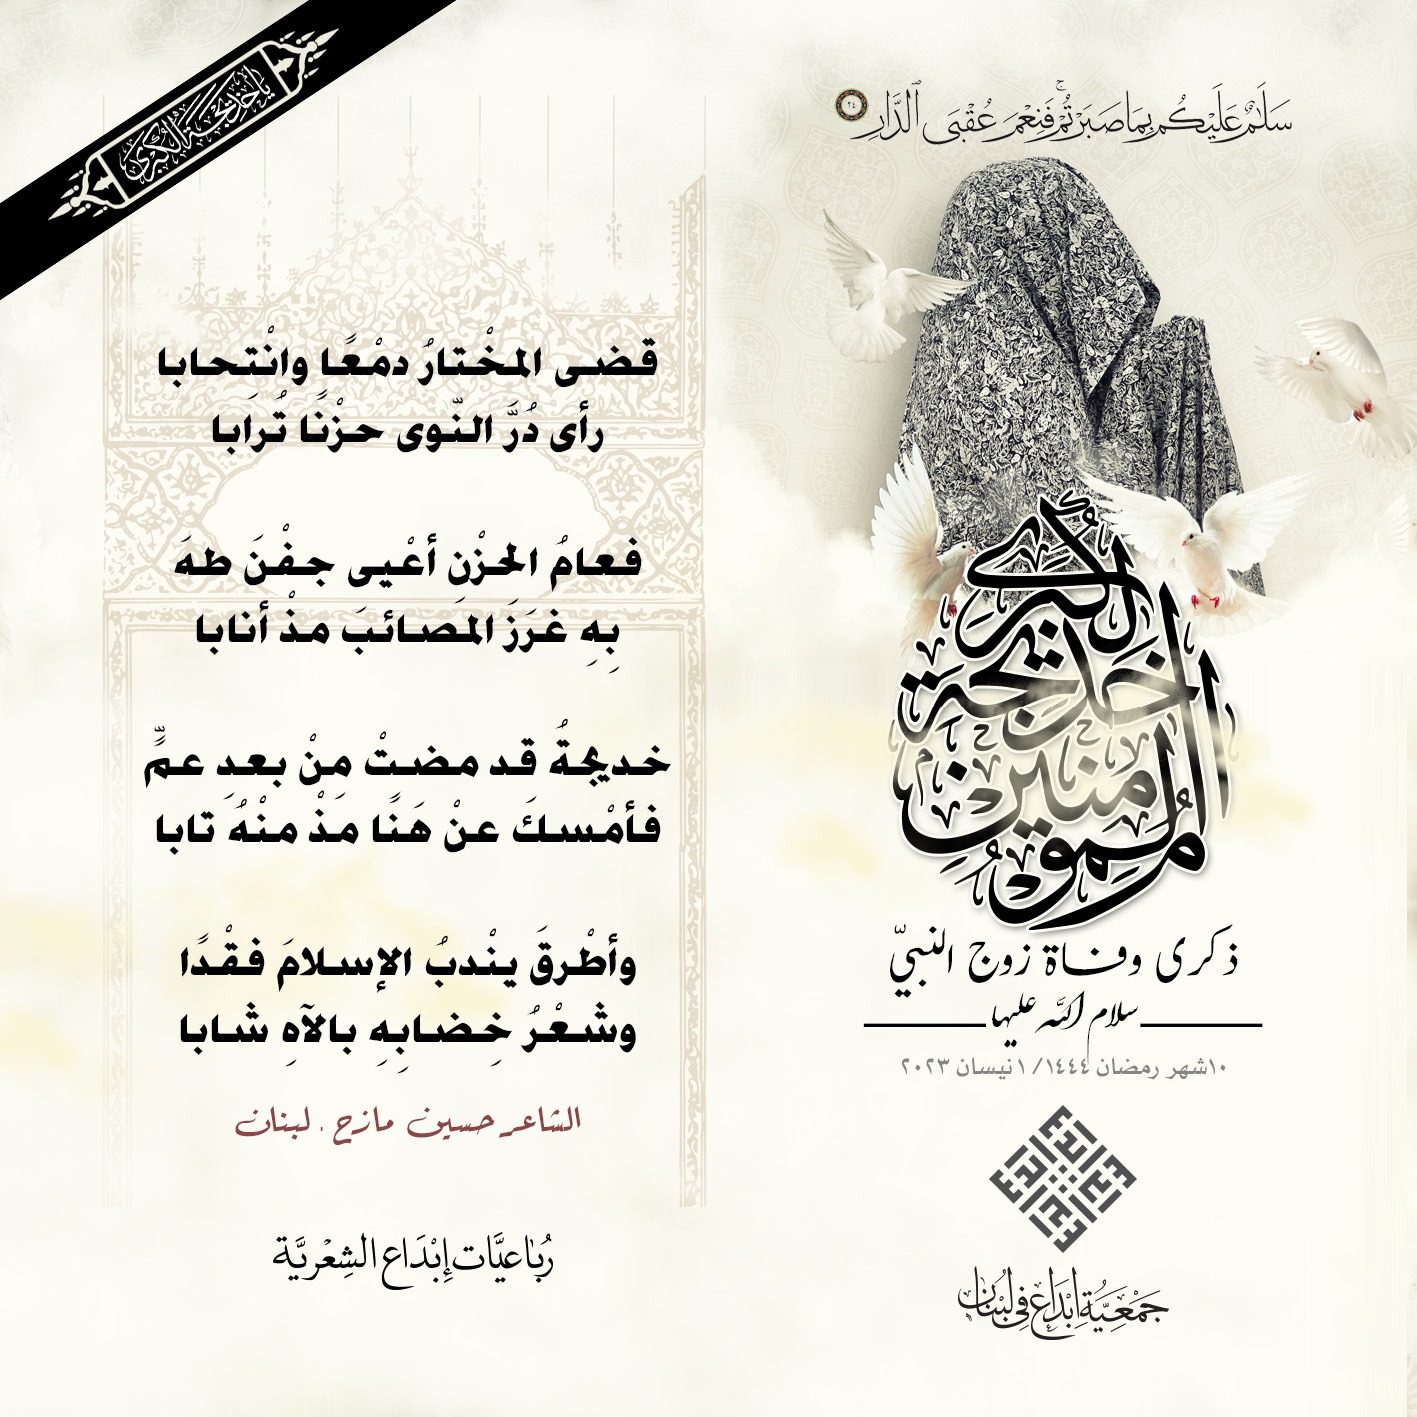 يا خديجة الكبرى
سَلَامٌ عَلَيْكُم بِمَا صَبَرْتُمْ ۚ فَنِعْمَ عُقْبَى ٱلدَّارِ ٢٤
قضى المخْتارُ دمْعًا وانْتِحابا
رأى دُرَّ النّوى حزْنًا تُرابا
فعامُ الحزْنِ أعْيى جفْنَ طهَ
بِهِ غرَزَ المصائبَ مذْ أنابا
خديجةُ قد مضتْ مِنْ بعدِ عمٍّ
فأمْسكَ عنْ هَنًا مذْ منْهُ تابا
وأطْرقَ ينْدبُ الإسلامَ فقْدًا
وشعْرُ خِضابِهِ بالآهِ شابا
الشاعر حسين مازح . لبنان
رُبَاعيَّات إِبْدَاع الشِعْريَّة
أم المؤمنين خديجة الكبرى
ذكرى وفاة زوج النبيّ
سلام الله عليها
١٠شهر رمضان ١٤٤٤/ ١ نيسان ٢٠٢٣
إبداع
جَمْعِيَّةُ إِبْدَاع فِي لُبْنَان